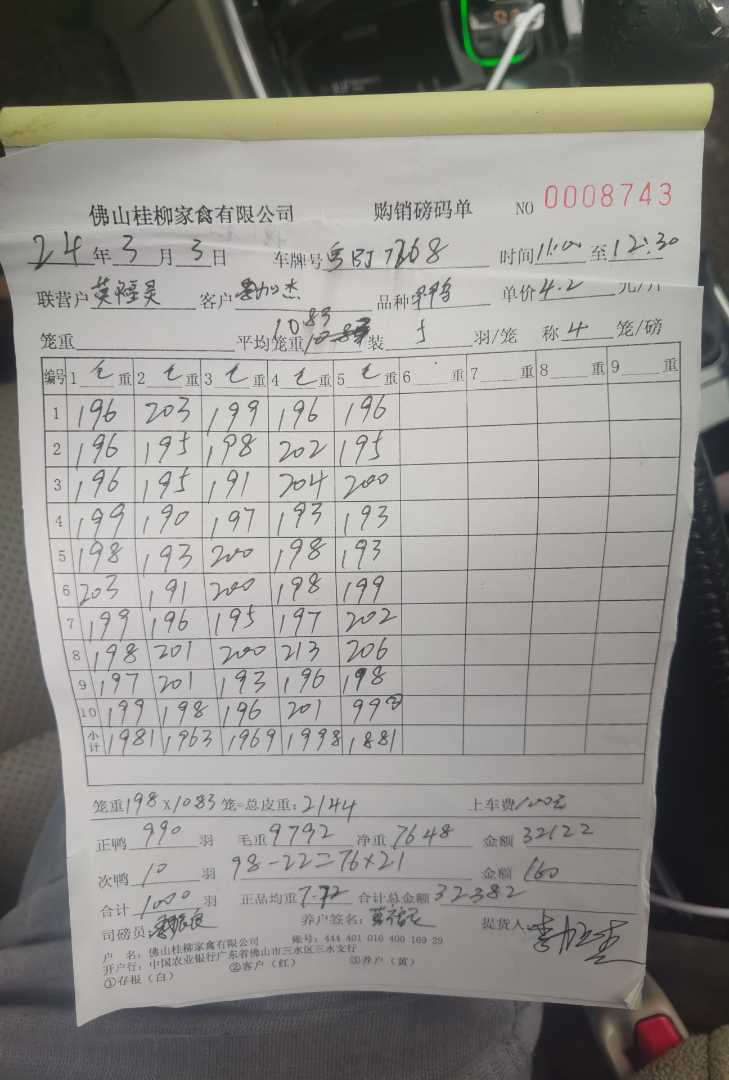 佛山桂柳家禽有限公司 购销磅码单 NO 0008743
24年3月3日 车牌号 7368 时间11:00至12:30
联营户 客户 杰 品种 鸭 单价4.2元/斤
笼重 平均笼重 1083 装 5 羽/笼 称4笼/磅
编号 1 毛重 2 毛重 3 毛重 4 毛重 5 毛重 6 重 7 重 8 重 9 重
1 196 203 199 196 196
2 196 195 198 202 195
3 196 195 191 204 200
4 199 190 197 193 193
5 198 193 200 198 193
6 203 191 200 198 199
7 199 196 195 197 202
8 198 201 200 213 206
9 197 201 193 196 198
10 199 198 196 201 99②
小计 1981 1963 1969 1998 1881
笼重198×1083笼=总皮重:2144 上车费100元
正鸭990羽 毛重9792 净重7648 金额32122
次鸭10羽 98-22=76×21 金额160
合计1000羽 正品均重7.72 合计总金额32382
司磅员: 养户签名: 提货人:
户 名:佛山桂柳家禽有限公司 账号:444 401 010 400 169 29
开户行:中国农业银行广东省佛山市三水区三水支行
①存根(白) ②客户(红) ③养户(黄)